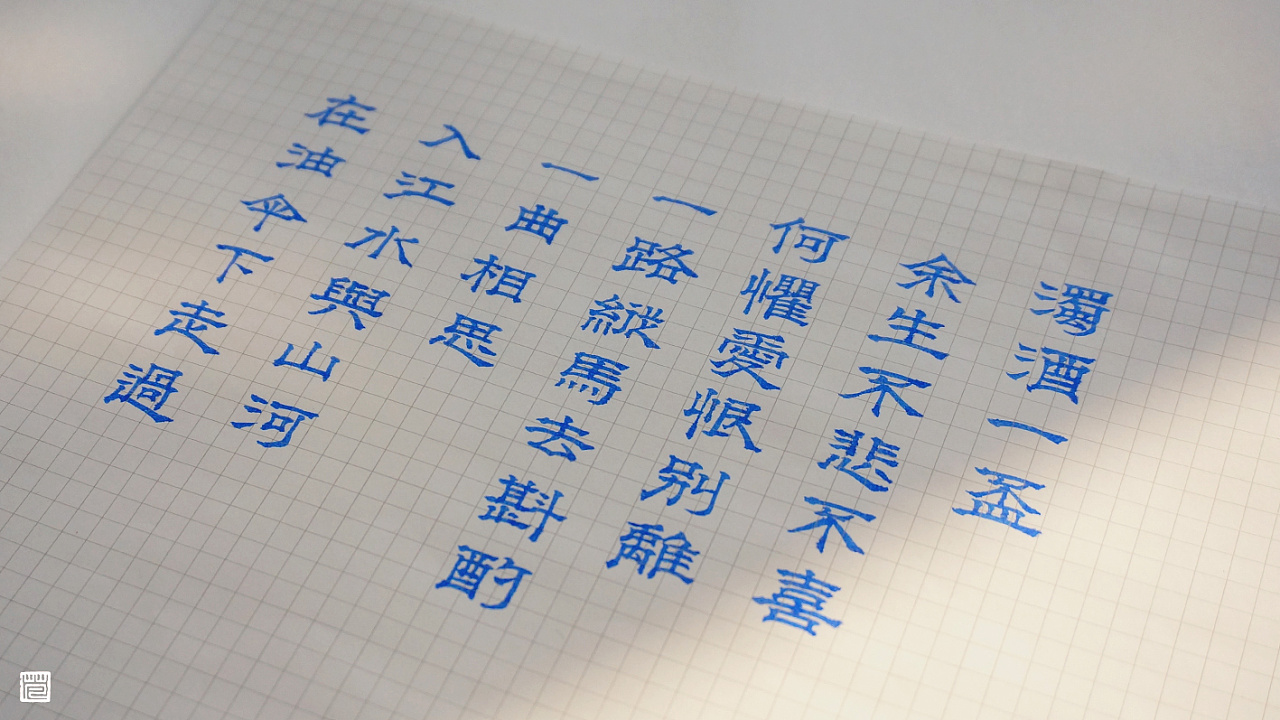 濁酒一盃
余生不悲不喜
何懼愛恨別離
一路縱馬去斟酌
一曲相思
入江水與山河
在油傘下走過